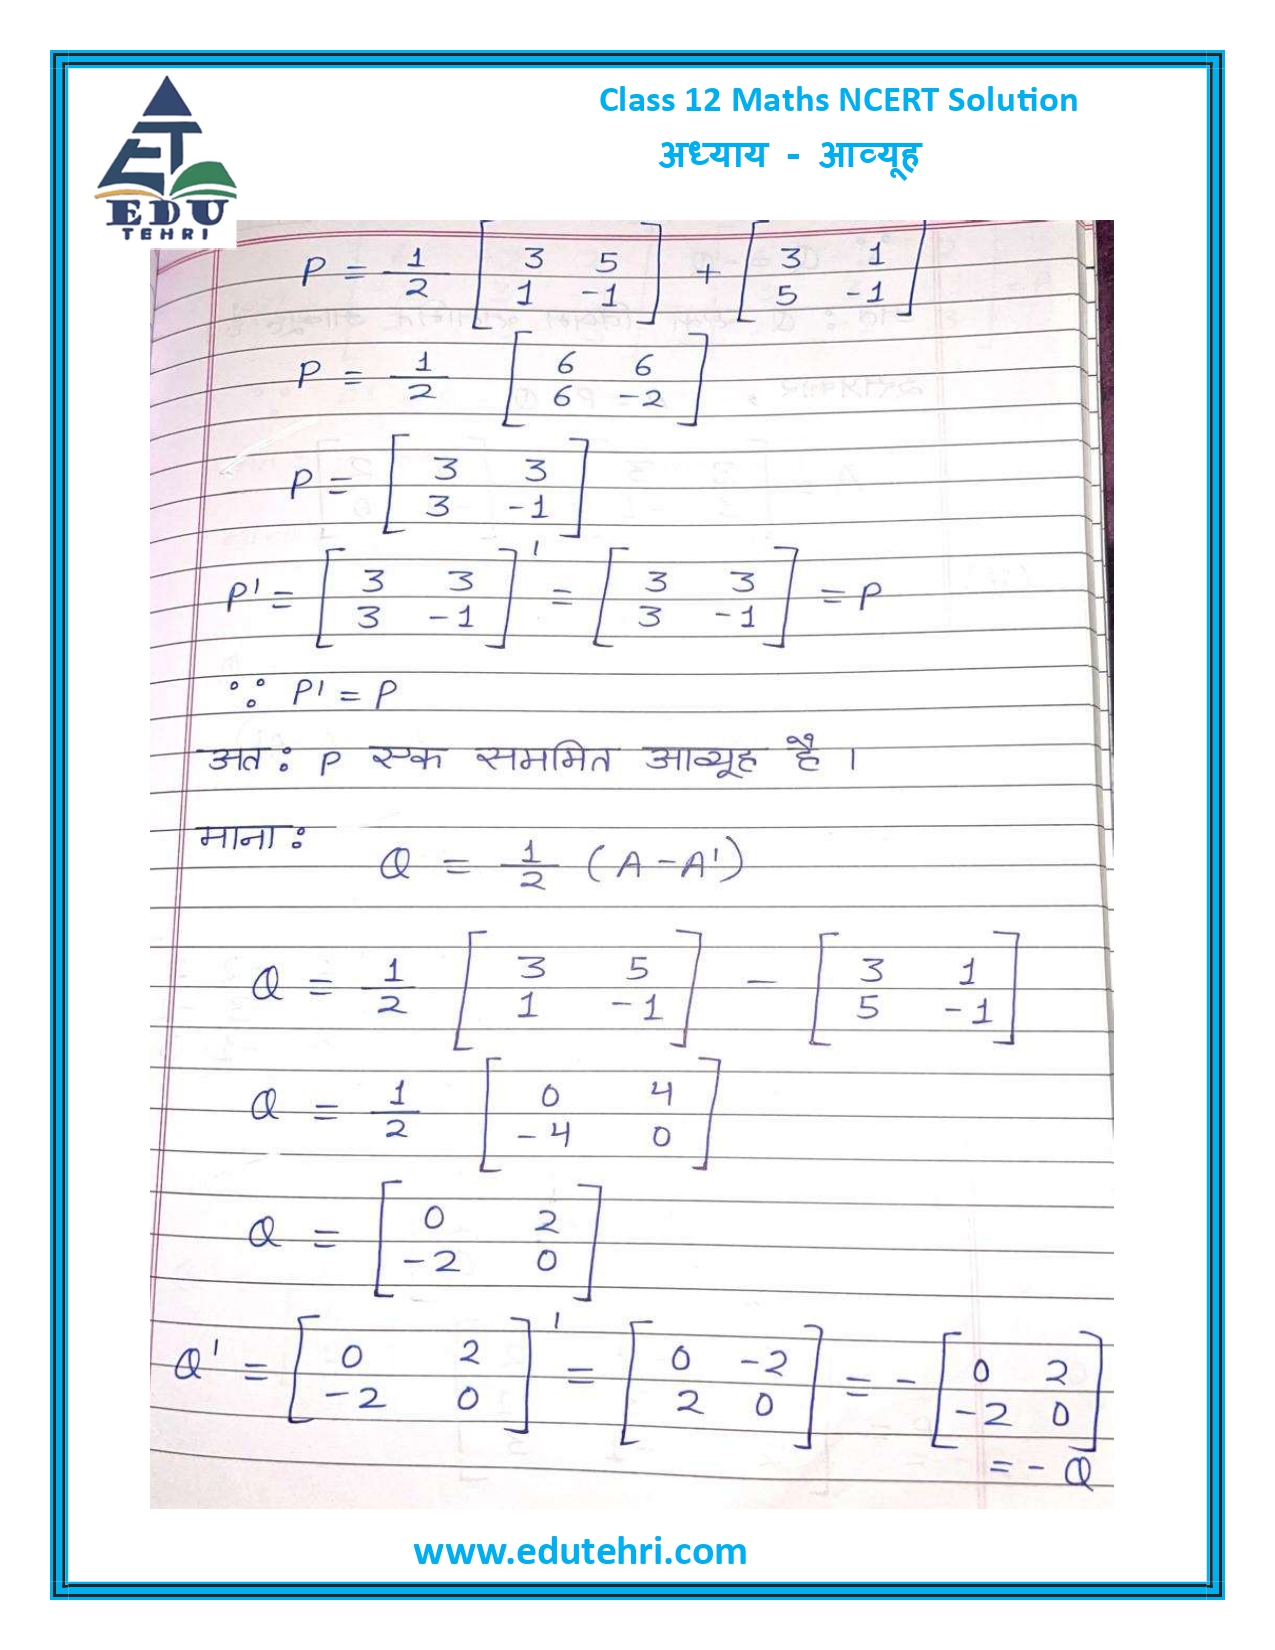 Class 12 Maths NCERT Solution
अध्याय - आव्यूह
EDU
TEHRI
P = 1/2 [3 5; 1 -1] + [3 1; 5 -1]
P = 1/2 [6 6; 6 -2]
P = [3 3; 3 -1]
P' = [3 3; 3 -1]' = [3 3; 3 -1] = P
∵ P' = P
अतः P एक सममित आव्यूह है ।
मानाः
Q = 1/2 (A - A')
Q = 1/2 [3 5; 1 -1] - [3 1; 5 -1]
Q = 1/2 [0 4; -4 0]
Q = [0 2; -2 0]
Q' = [0 2; -2 0]' = [0 -2; 2 0] = - [0 2; -2 0]
= - Q
www.edutehri.com